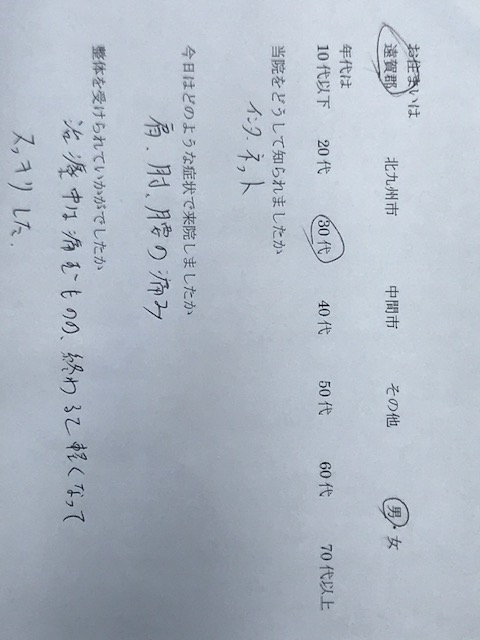 お住まいは
遠賀郡 北九州市 中間市 その他 男・女
年代は
10代以下 20代 30代 40代 50代 60代 70代以上
当院をどうして知られましたか
インターネット
今日はどのような症状で来院しましたか
肩、肘、腰の痛み
整体を受けられていかがでしたか
治療中は痛むものの、終わると軽くなって
スッキリした。